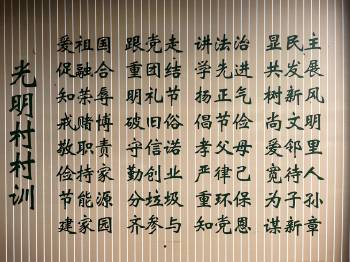 光明村村训
爱祖国
促融合
知荣辱
戒赌博
敬职责
俭持家
节能源
建家园
跟党走
重团结
明礼节
破旧俗
守信诺
勤创业
分垃圾
齐参与
讲法治
学先进
扬正气
倡节俭
孝父母
严律己
重环保
知党恩
显民主
共发展
树新风
尚文明
爱邻里
宽待人
为子孙
谋新章